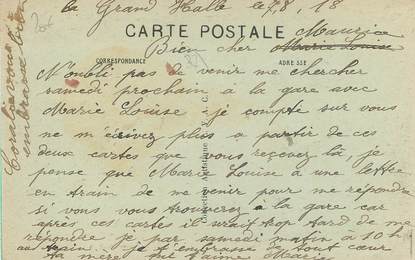 La Grand Halle le 7, 8, 18
CARTE POSTALE
Bien cher Marie Louise Maurice
CORRESPONDANCE
ADRESSE
N'oubli pas de venir me chercher
samedi prochain à la gare avec
Marie Louise je compte sur vous
ne m'écrivez plus a partir de ces
deux cartes que vous reçevez là je
pense que Marie Louise à une lettre
en train de me venir pour me répondre
si vous vous trouverez à la gare car
après ces cartes il serait trop tard de me
répondre je par samedi matin à 10h
au train. je t'embrasse de tout cœur
Ta mère qui t'aime Marie
Collection Artistique